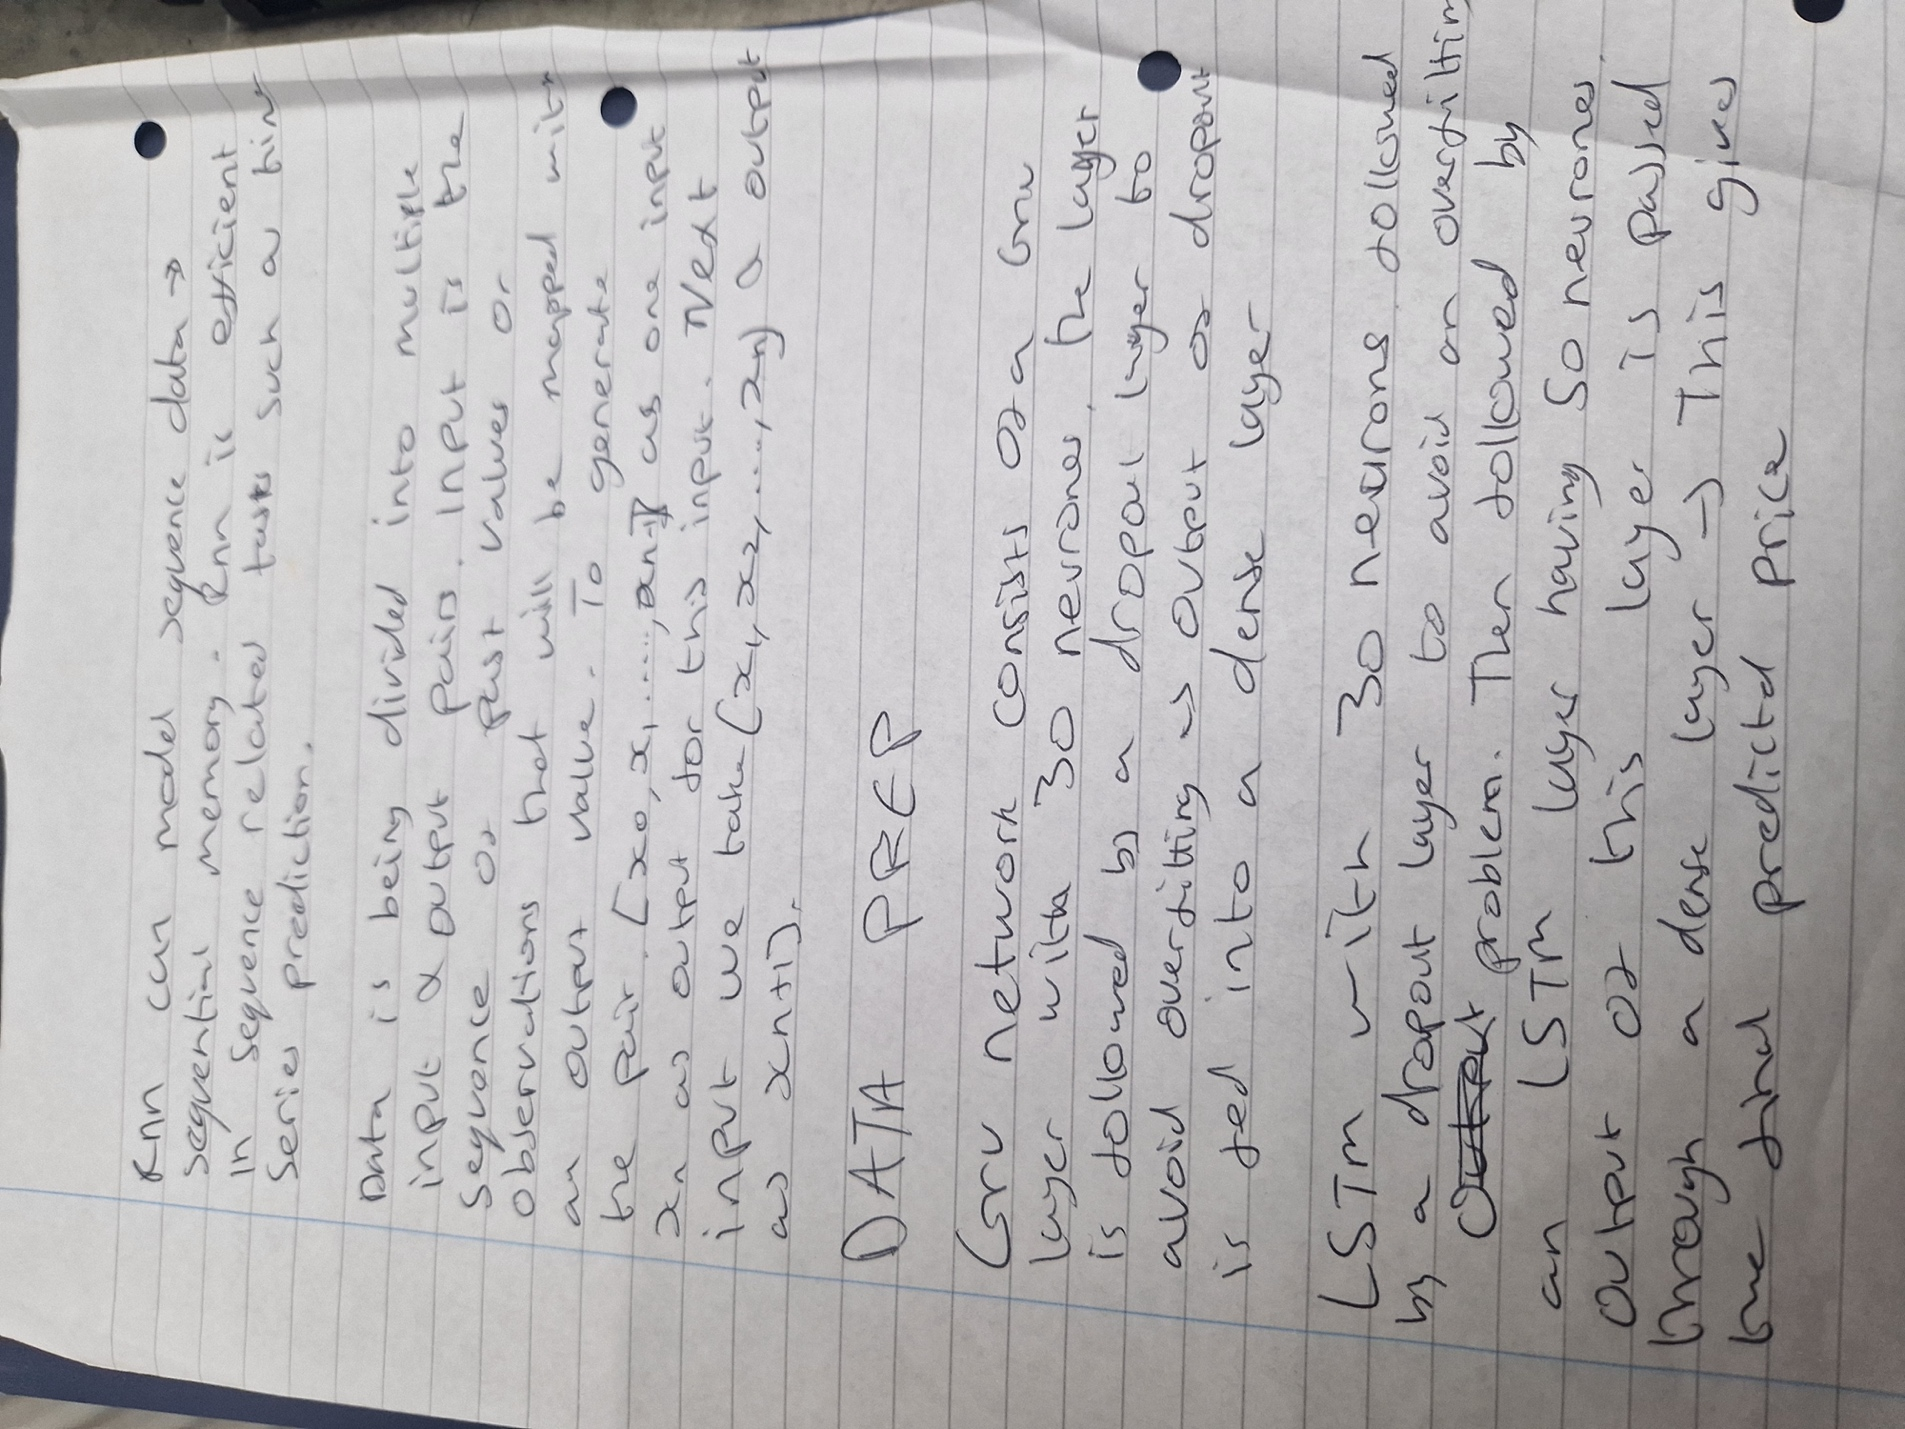 Rnn can model sequence data →
sequential memory. Rnn is efficient
in sequence related tasks such as time
series prediction.
Data is being divided into multiple
input & output pairs. Input is the
sequence of past values or
observations that will be mapped with
an output value. To generate
the pair. [x0, x1, ....., xn-1] as one input
xn as output for this input. Next
input we take [x1, x2, ...., xn] & output
as xn+1).
DATA PREP
Gru network consists of a Gru
layer with 30 neurones. the layer
is followed by a dropout layer to
avoid overfitting → output of dropout
is fed into a dense layer
LSTM with 30 neurons followed
by a dropout layer to avoid an overfitting
problem. Then followed by
an LSTM layer having 50 neurones.
output of this layer is passed
through a dense layer → This gives
the final predicted price